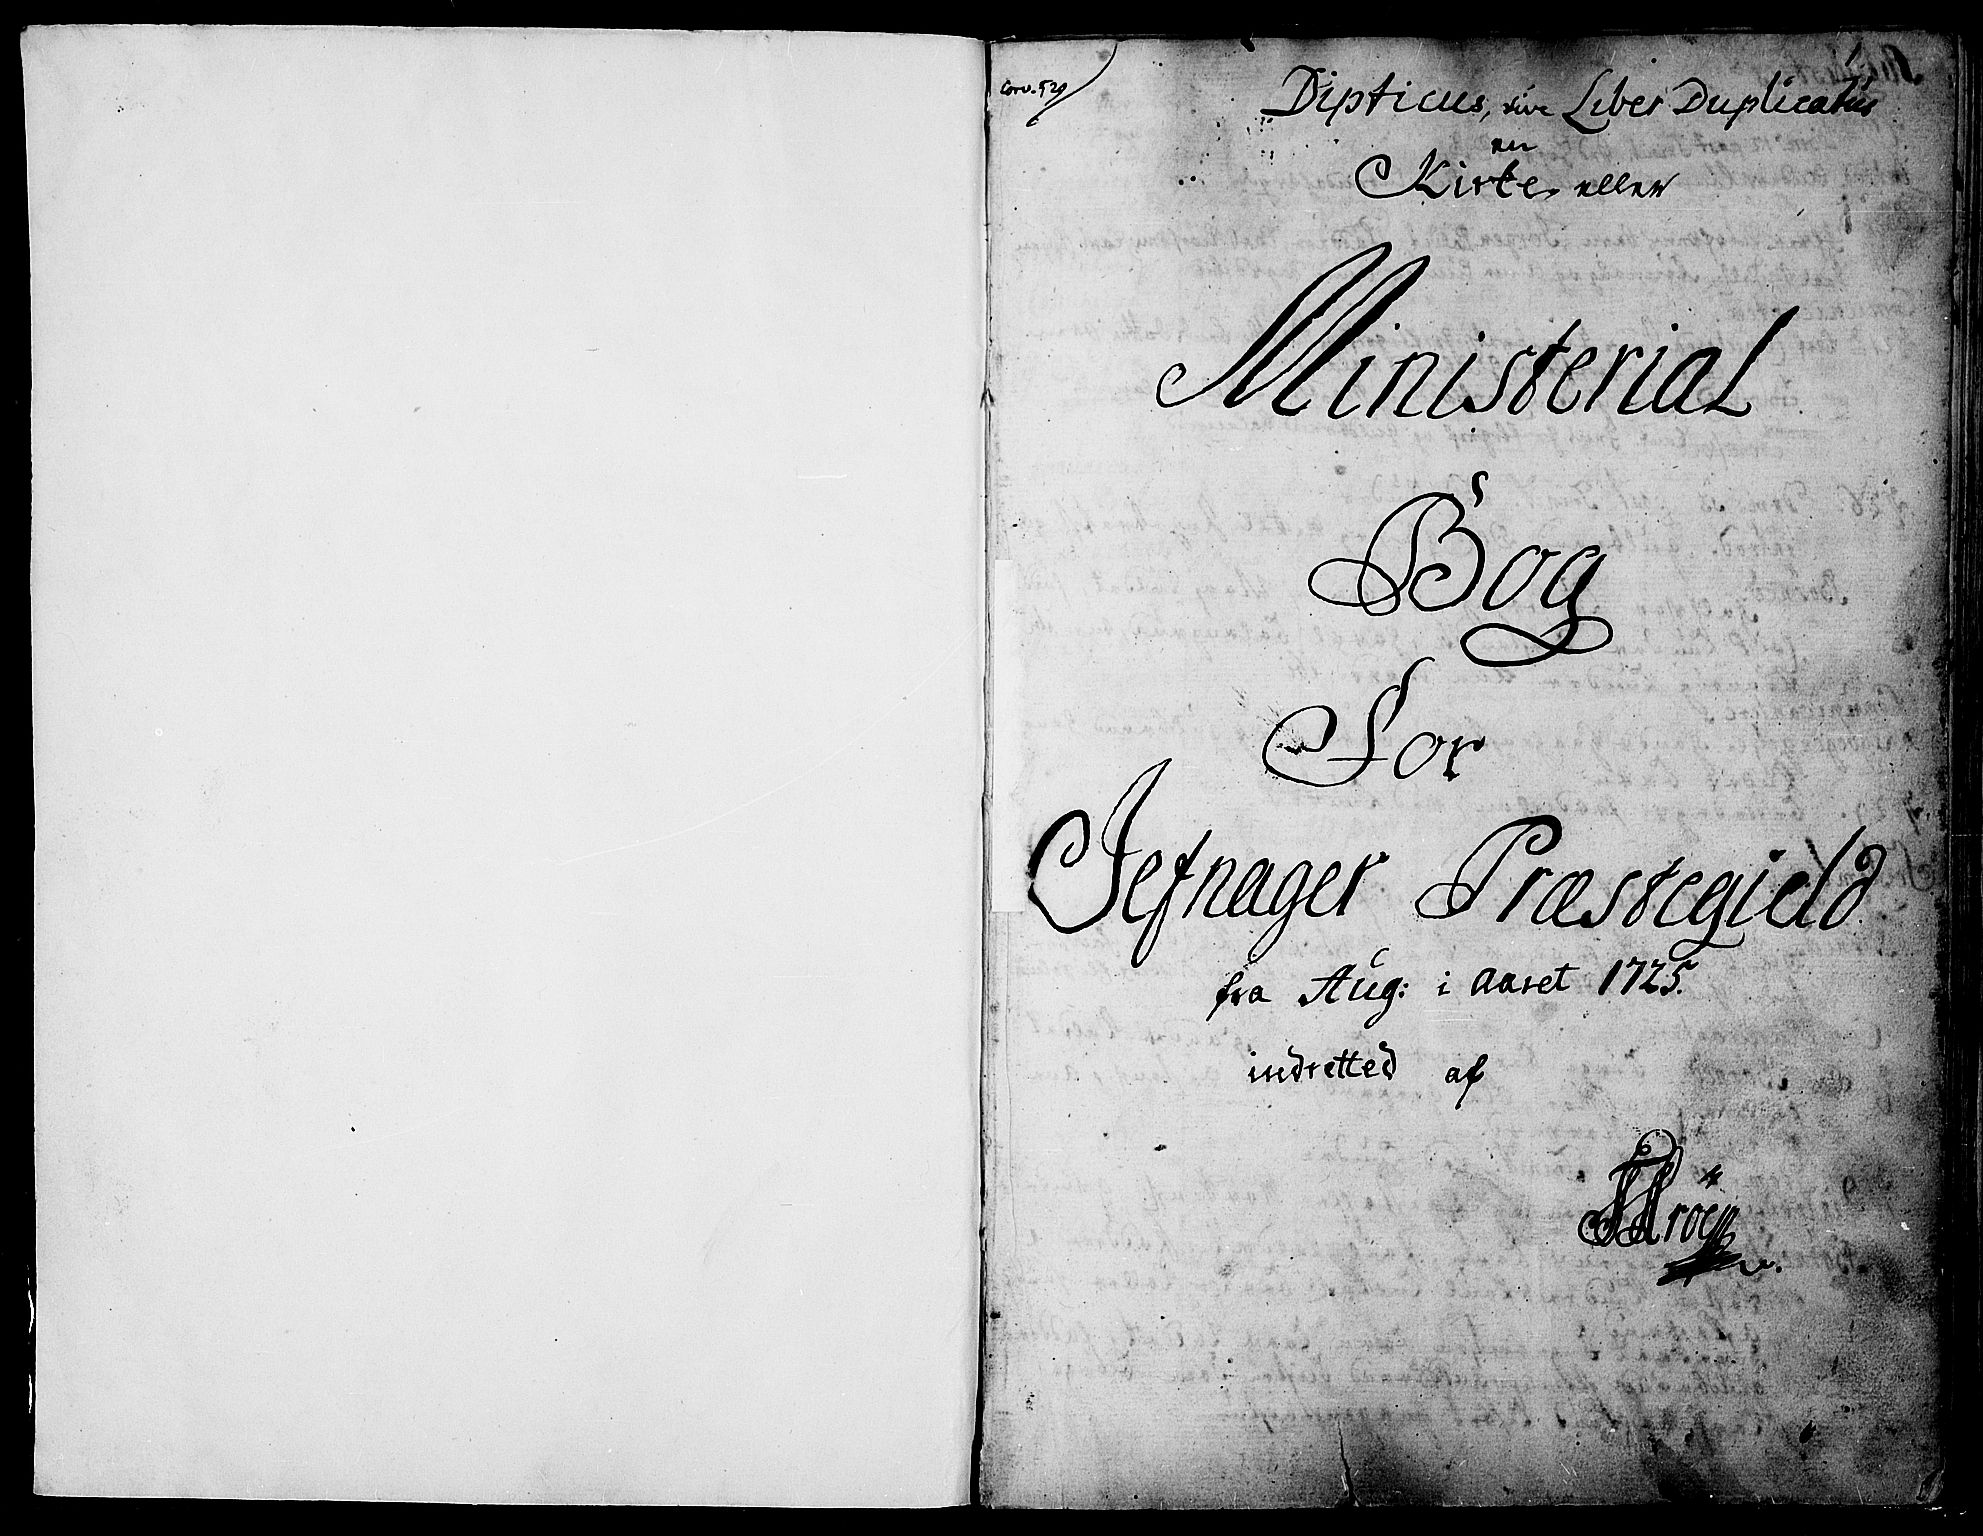 Conv. 520
Dipticus, sive Liber Duplicatus
en
Kirke eller
Ministerial
Bog
For
Jefnager Præstegield
fra Aug: i Aaret 1725.
indretted af